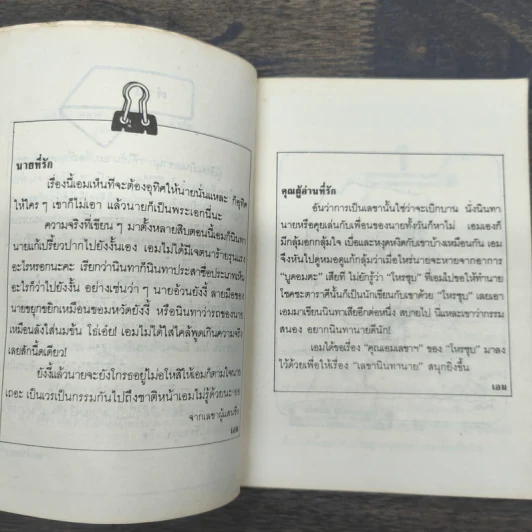 นายที่รัก
เรื่องนี้เอมเห็นทีจะต้องอุทิศให้นายนั่นแหละ ก็อุทิศ
ให้ใคร ๆ เขาก็ไม่เอา แล้วนายก็เป็นพระเอกนี่นะ
ความจริงที่เขียน ๆ มาตั้งหลายสิบตอนนี้เอมก็นินทา
นายแก้เปรี้ยวปากไปยังงั้นเอง เอมไม่ได้มีเจตนาร้ายรุนแรง
อะไรหรอกนะคะ เรียกว่านินทาก็นินทาประสาซื่อประเภทเห็น
อะไรก็ว่าไปยังงั้น อย่างเช่นว่า ๆ นายอ้วนยังงี้ ลายมือของ
นายขยุกขยิกเหมือนขอมหวัดยังงี้ หรือนินทาว่ารถของนาย
เหมือนลังใส่นมข้น โธ่เอ๋ย! เอมไม่ได้ใส่ไคล้พูดเกินความจริง
เลยสักนี้ดเดียว!
ยังงี้แล้วนายจะยังโกรธอยู่ไม่อโหสิให้เอมก็ตามใจนาย
เถอะ เป็นเวรเป็นกรรมกันไปถึงชาติหน้าเอมไม่รู้ด้วยนะ
จากเลขาผู้แสนดี
เอม
คุณผู้อ่านที่รัก
อันว่าการเป็นเลขานั้นใช่ว่าจะเบิกบาน นั่งนินทา
นายหรือคุยเล่นกับเพื่อนของนายทั้งวันก็หาไม่ เอมเองก็
มีกลุ้มอกกลุ้มใจ เบื่อและหงุดหงิดกับเขาบ้างเหมือนกัน เอม
จึงหันไปดูหมอดูแก้กลุ้มว่าเมื่อไหร่นายจะหายจากอาการ
"บูดอมตะ" เสียที ไม่ยักรู้ว่า "โหรซุบ" ที่เอมไปขอให้ทำนาย
โชคชะตาราศีนั้นก็เป็นนักเขียนกับเขาด้วย "โหรซุบ" เลยเอา
เอมมาเขียนนินทาเสียอีกต่อหนึ่ง สบายไป นี่แหละเขาว่ากรรม
สนอง อยากนินทานายดีนัก!
เอมได้ขอเรื่อง "คุณเอมเลขาฯ" ของ "โหรซุบ" มาลง
ไว้ด้วยเพื่อให้เรื่อง "เลขานินทานาย" สนุกยิ่งขึ้น
เอม